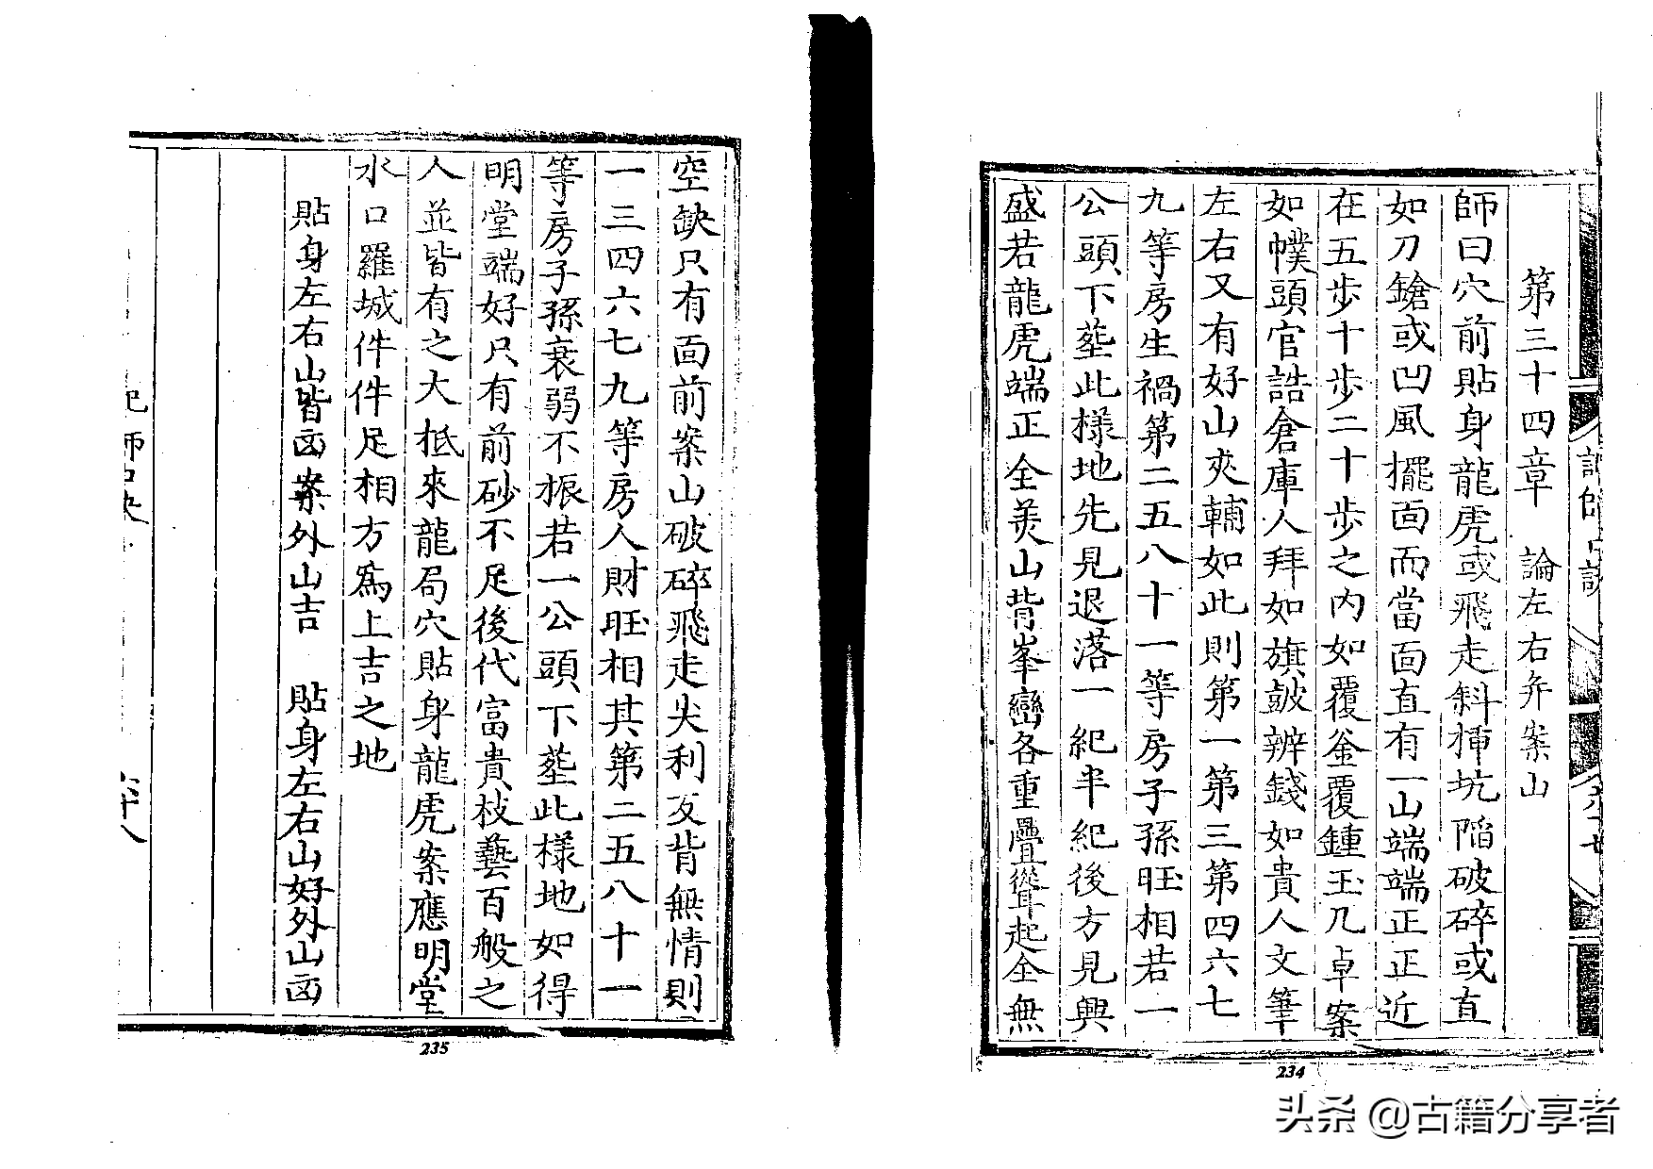 第三十四章　論左右弁案山
師曰穴前貼身龍虎或飛走斜揷坑陷破碎或直
如刀鎗或凹風擺面而當面直有一山端端正正近
在五步十步二十步之內如覆釜覆鍾玉几卓案
如幞頭官誥倉庫人拜如旗鼓辨錢如貴人文筆
左右又有好山夾輔如此則第一第三第四六七
九等房生禍第二五八十一等房子孫旺相若一
公頭下塟此樣地先見退落一紀半紀後方見興
盛若龍虎端正全美山背峯巒各重疊聳起全無
空缺只有面前案山破碎飛走尖利反背無情則
一三四六七九等房人財旺相其第二五八十一
等房子孫衰弱不振若一公頭下塟此樣地如得
明堂端好只有前砂不足後代富貴枝藝百般之
人並皆有之大抵來龍局穴貼身龍虎案應明堂
水口羅城件件足相方爲上吉之地
貼身左右山皆凶案外山吉　貼身左右山好外山凶
六十八
235
234
头条 @古籍分享者